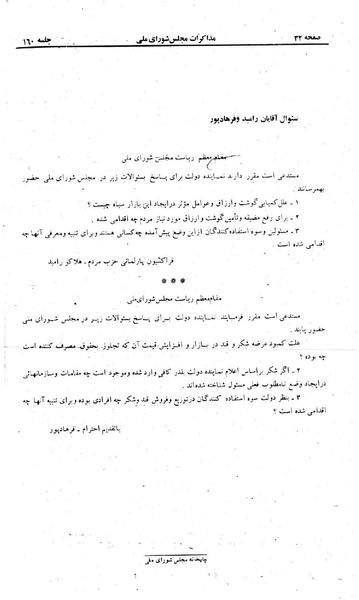 صفحه ۳۲
مذاکرات مجلس شورای ملی
جلسه ۱۶۰
سئوال آقایان رامبد وفرهادپور
مقام معظم ریاست مجلس شورای ملی
مستدعی است مقرر دارند نماینده دولت برای پاسخ بسئوالات زیر در مجلس شورای ملی حضور
بهمرسانند .
۱ - علل کمیابی گوشت و ارزاق وعوامل مؤثر درایجاد این بازار سیاه چیست ؟
۲ - برای رفع مضیقه وتأمین گوشت و ارزاق مورد نیاز مردم چه اقدامی شده .
۳ - مسئولین وسوء استفاده کنندگان از این وضع پیش آمده چه کسانی هستند وبرای تنبیه ومعرفی آنها چه
اقدامی شده است ؟
فراکسیون پارلمانی حزب مردم - هلاکو رامبد
* * *
مقام معظم ریاست مجلس شورای ملی
مستدعی است مقرر فرمایند نماینده دولت برای پاسخ بسئوالات زیر در مجلس شورای ملی
حضور یابند .
علت کمبود عرضه شکر و قند در بازار و افزایش قیمت آن که تجاوز بحقوق مصرف کننده است
چه بوده ؟
۲ - اگر شکر براساس اعلام نماینده دولت بقدر کافی وارد شده وموجود است چه مقامات وسازمانهائی
درایجاد وضع نامطلوب فعلی مسئول شناخته شده‌اند .
۳ - بنظر دولت سوء استفاده کنندگان درتوزیع وفروش قند وشکر چه افرادی بوده وبرای تنبیه آنها چه
اقدامی شده است ؟
باتقدیم احترام - فرهادپور
چاپخانه مجلس شورای ملی